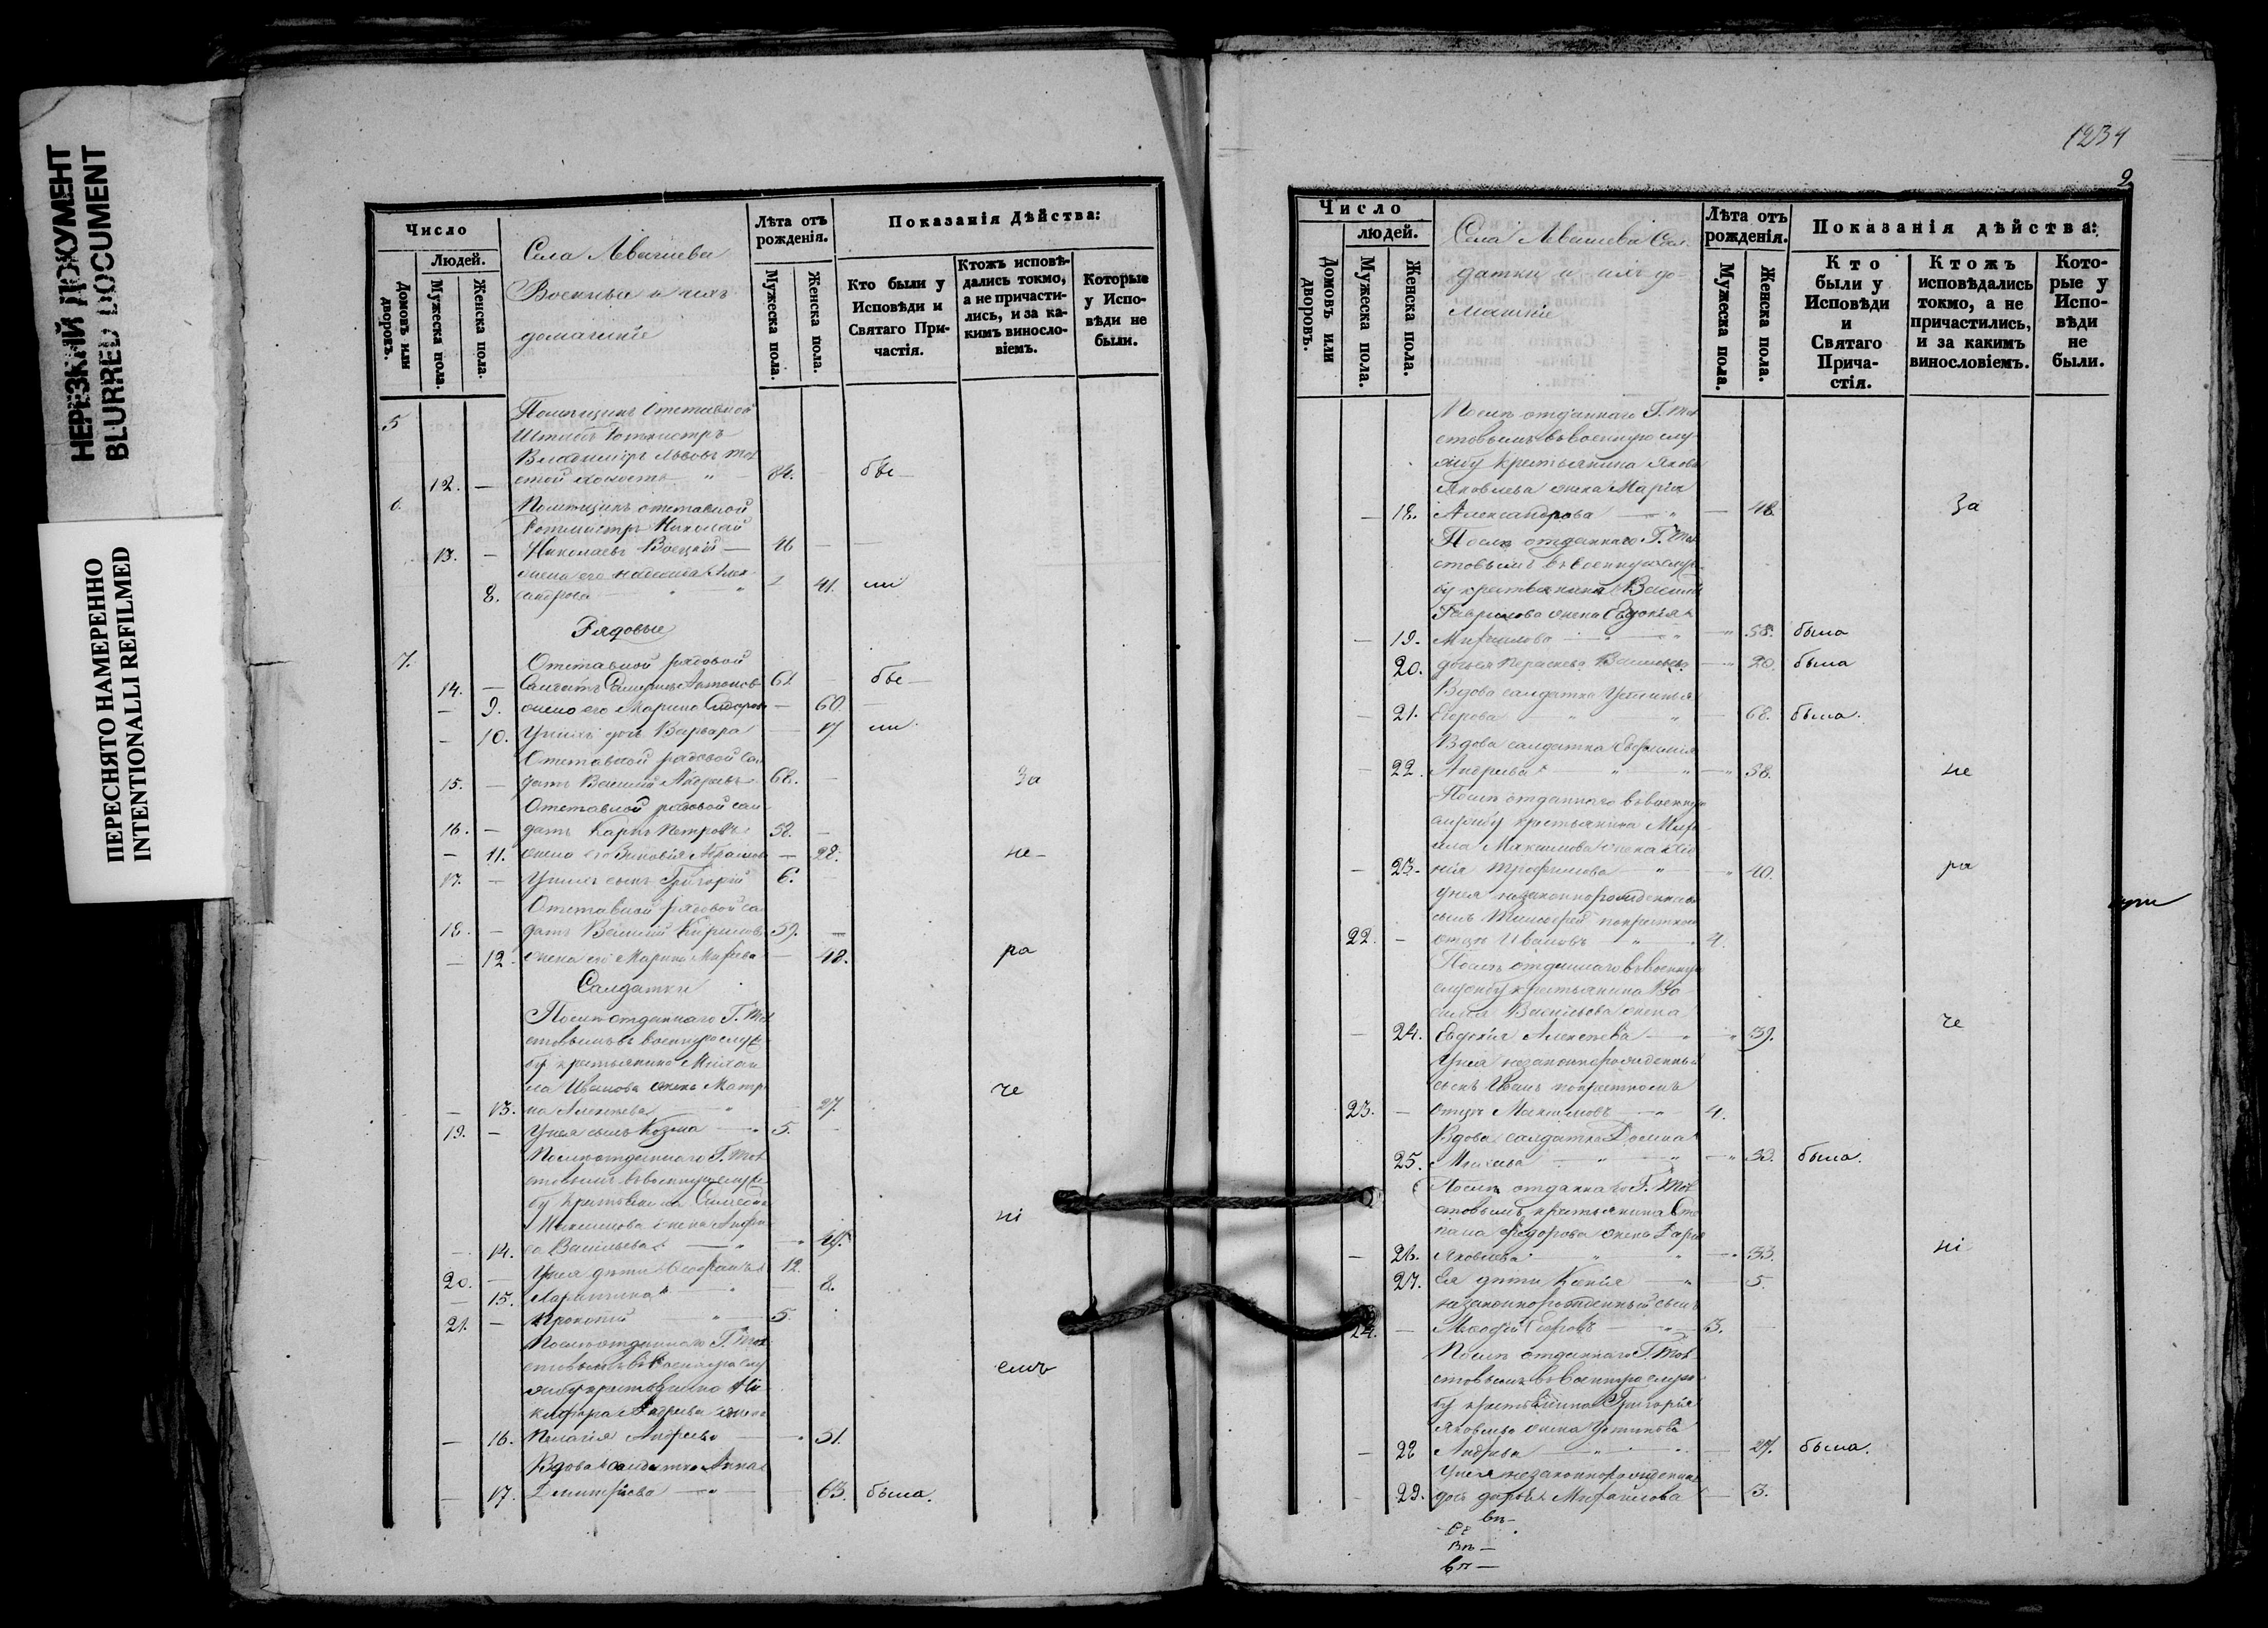 НЕРЕЗКИЙ ДОКУМЕНТ
BLURRED DOCUMENT
ПЕРЕСНЯТО НАМЕРЕННО
INTENTIONALLI REFILMED
Число
Людей.
Домовъ или дворовъ.
Мужеска пола.
Женска пола.
Села
Военные и ихъ
домашніе
Лѣта отъ рожденія.
Мужеска пола.
Женска пола.
Показанія Дѣйства:
Кто были у Исповѣди и Святаго При-
частія.
Ктожъ исповѣ-
дались токмо,
а не причасти-
лись, и за ка-
кимъ винносло-
віемъ.
Которые
у Испо-
вѣди не
были.
5 Помѣщикъ Отставной
Штабъ Ротмистръ
Владиміръ Львовъ Тол
12. — стой холостъ 84. бы—
6 Помѣщикъ отставной
Ротмистръ Николай
13. — Николаевъ 46
жена его Алек
8. сандрова 41. ли
Рядовые
7. Отставной рядовой
14. — Антоновъ 61 бы—
— 9. жена его Марина 60
— 10. У нихъ дочь Варвара 17 ли
Отставной рядовой сол
15. — датъ Василій Андреевъ 68. — за
Отставной рядовой сол
16. — датъ Карпъ Петровъ 52. —
— 11. жена его Зиновія 28. не—
17. — У нихъ сынъ Григорій 6.
Отставной рядовой со
18. — датъ Василій Кириловъ 59. —
— 12. жена его Марина 48. ра
Салдатки
Послѣ отданнаго Г. Тол
стовымъ въ военную служ
бу крестьянина Михаи
ла Иванова жена Матре
— 13. на Алексѣева 27. че
19. — У нея сынъ Козма 5.
Послѣ отданнаго Г. Тол
стовымъ въ военную служ
бу крестьянина
Максимова жена
— 14. са Васильева ні
20. — У нея дѣти 12.
— 15. 8.
21. — Прокопій 5.
Послѣ отданнаго Г. Тол
стовымъ въ военную слу
жбу крестьянина Ни
кифора Андреева жена
— 16. Пелагія Андреева 51. емъ
Вдова салдатка Анна
— 17. Дмитріева 63. была.
1234
2
Число
людей.
Домовъ или дворовъ.
Мужеска пола.
Женска пола.
Села Сал
датки и ихъ до
машніе
Лѣта отъ рожденія.
Мужеска пола.
Женска пола.
Показанія дѣйства:
Кто
были у
Исповѣди
и
Святаго
Прича-
стія.
Ктожъ
исповѣдались
токмо, а не
причастились,
и за какимъ
винословіемъ.
Кото-
рые у
Испо-
вѣди
не
были.
Послѣ отданнаго Г. Тол
стовымъ въ военную слу
жбу крестьянина Якова
Яковлева жена Марія
— 18. Александрова 48. за
Послѣ отданнаго Г. Тол
стовымъ въ военную служ
бу крестьянина Василія
Гаврилова жена Евдокія
— 19. Михаилова 58. была
20. дочь ея Параскева Васильева 20. была
Вдова салдатка Устинья
— 21. Егорова 68. была.
Вдова салдатка Евфимія
— 22. Андреева 58. не
Послѣ отданнаго въ военную
службу крестьянина Миха
ила Максимова жена
— 23. Трофимова 40. ра
У нея незаконнорожденный
сынъ Тимофей по крестном
22. — отцѣ Ивановъ 4.
Послѣ отданнаго въ военную
службу крестьянина
Васильева жена
— 24. Евдокія Алексѣева 39. че
У нея незаконнорожденный
сынъ Иванъ по крестномъ
23. — отцѣ Максимовъ 4.
Вдова салдатка Домна
25. Михеева 33. была.
Послѣ отданнаго Г. Тол
стовымъ крестьянина Сте
пана Федорова жена Дарья
— 26. Яковлева 33. ні
27. Ея дѣти Ксенія 5.
незаконнорожденный сынъ
24. — Егоровъ 3.
Послѣ отданнаго Г. Тол
стовымъ въ военную служ
бу крестьянина Григорія
Яковлева жена Устинья
— 28 Андреева 27. была.
У нея незаконнорожденная
— 29. дочь Дарья Михайлова 3.